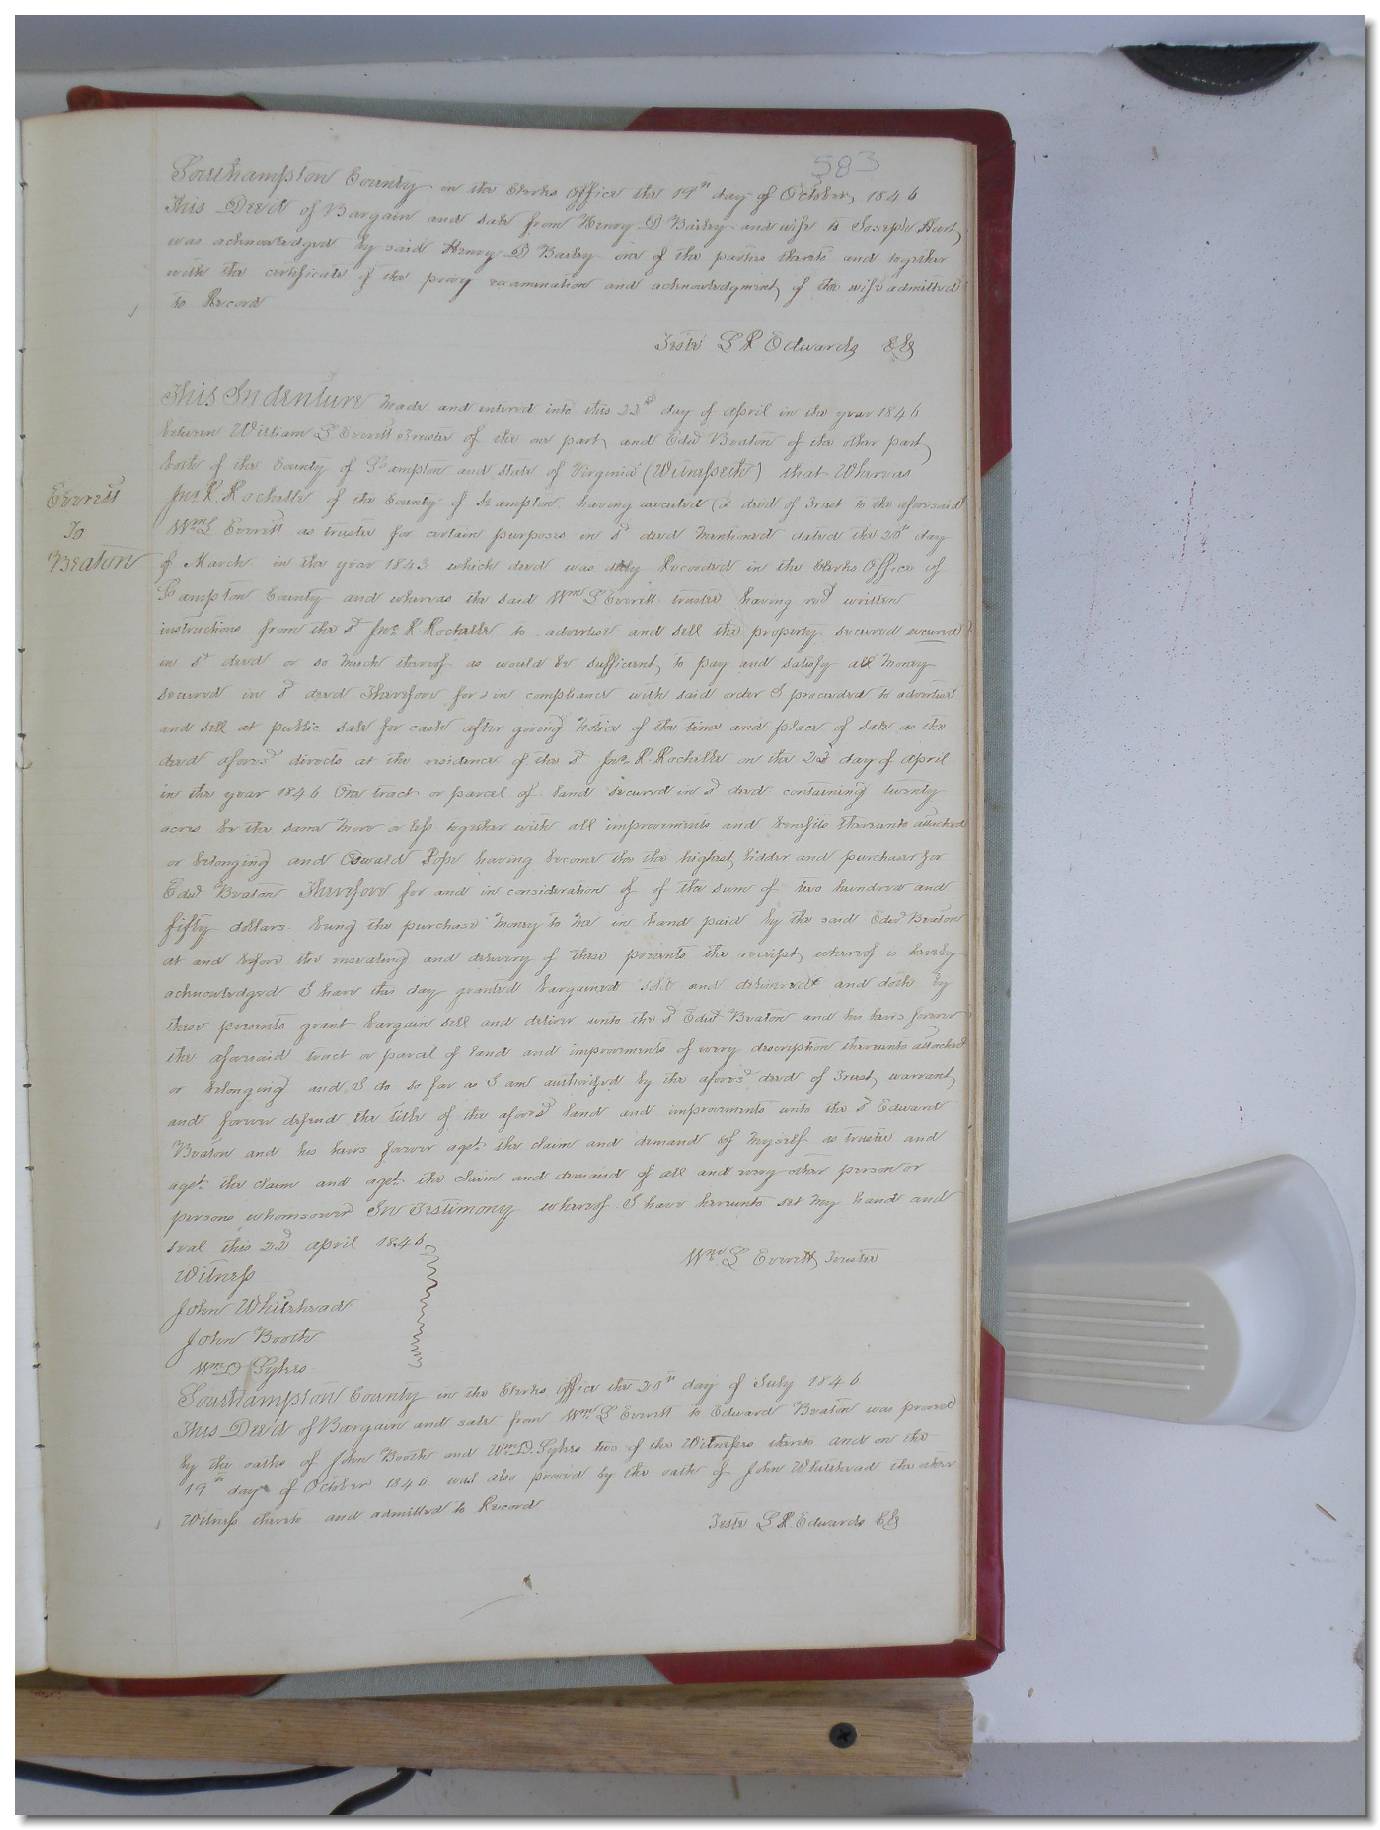 583
Southampton County in the Clerks Office the 19th day of October, 1846
This Deed of Bargain and sale from Henry D Bailey and wife to Joseph Hart
was acknowledged by said Henry D Bailey one of the parties thereto and together
with the certificate of the privy examination and acknowledgment of the wife admitted
to Record
Teste L R Edwards CC
This Indenture Made and entered into this 22d day of April in the year 1846
between William L Everett Trustee of the one part and Edwd Beaton of the other part
both of the County of S.hampton and State of Virginia (Witnesseth) that Whereas
Jno. R. Rochelle of the County of S.hampton having executed (a deed of Trust to the aforesaid
Everett
To
Beaton
Wm L Everett as trustee for certain purposes in sd deed Mentioned dated the 20th day
of March in the year 1843 which deed was duly Recorded in the Clerks Office of
S.hampton County and whereas the said Wm L Everett trustee having recd written
instructions from the sd Jno. R Rochelle to advertise and sell the property secured secured
in sd deed or so much thereof as would be sufficient to pay and satisfy all Money
secured in sd deed Therefore for & in compliance with said order I proceeded to advertise
and sell at public sale for cash after giving Notice of the time and place of sale as the
deed aforesd directs at the residence of the sd Jno. R. Rochelle on the 22d day of April
in the year 1846 One tract or parcel of land secured in sd deed containing twenty
acres be the same More or less together with all improvements and benefits thereunto attached
or belonging and Oswald Pope having become the the highest bidder and purchaser for
Edwd Beaton Therefore for and in consideration of of the sum of two hundred and
fifty dollars being the purchase Money to Me in hand paid by the said Edwd Beaton
at and before the ensealing and delivery of these presents the receipt whereof is hereby
acknowledged I have this day granted bargained sold and delivered and doth by
these presents grant bargain sell and deliver unto the sd Edwd Beaton and his heirs forever
the aforesaid tract or parcel of land and improvements of every description thereunto attached
or belonging and I do so far as I am authorized by the aforesd deed of Trust warrant
and forever defend the title of the aforesd land and improvements unto the sd Edward
Beaton and his heirs forever agst. the claim and demand of Myself as trustee and
agst. the claim and agst. the claim and demand of all and every other person or
persons whomsoever In Testimony whereof I have hereunto set My hand and
seal this 22d April 1846
Wm. L Everett Trustee
Witness
John Whitehead
John Booth
Wm D Sykes
Southampton County in the Clerks Office the 20th day of July 1846
This Deed of Bargain and sale from Wm L Everett to Edward Beaton was proved
by the oaths of John Booth and Wm D. Sykes two of the Witnesses thereto and on the
19th day of October 1846 was also proved by the oath of John Whitehead the other
Witness thereto and admitted to Record
Teste L R Edwards CC